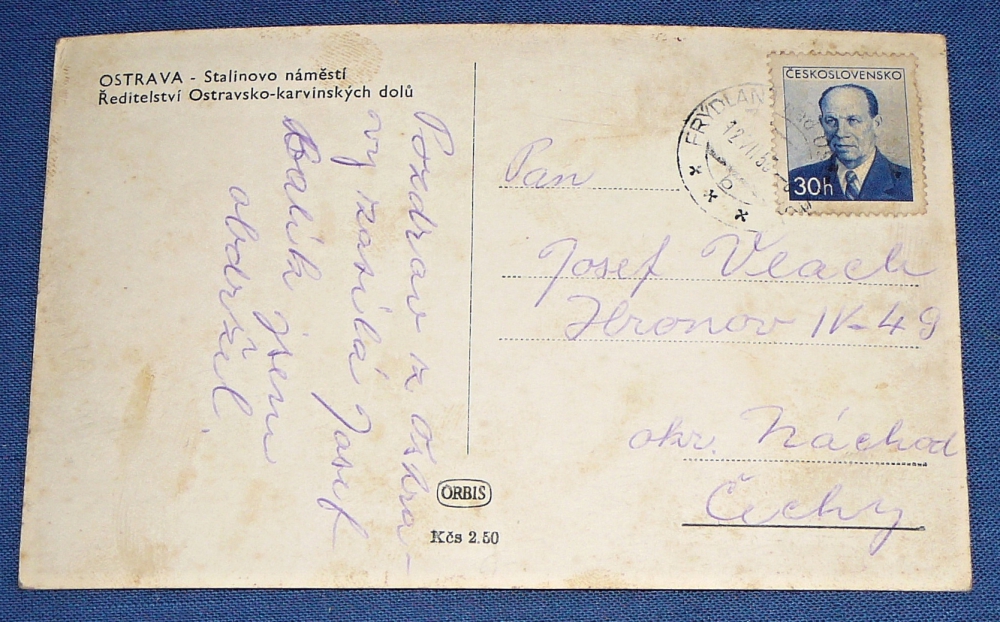 OSTRAVA - Stalinovo náměstí
Ředitelství Ostravsko-karvinských dolů
Pozdrav z Ostra-
vy zasílá Josef
balík jsem
obdržel.
ORBIS
Kčs 2.50
ČESKOSLOVENSKO
30h
FRÝDLAN
Pan
Josef Vlach
Hronov IV-49
okr. Náchod
Čechy